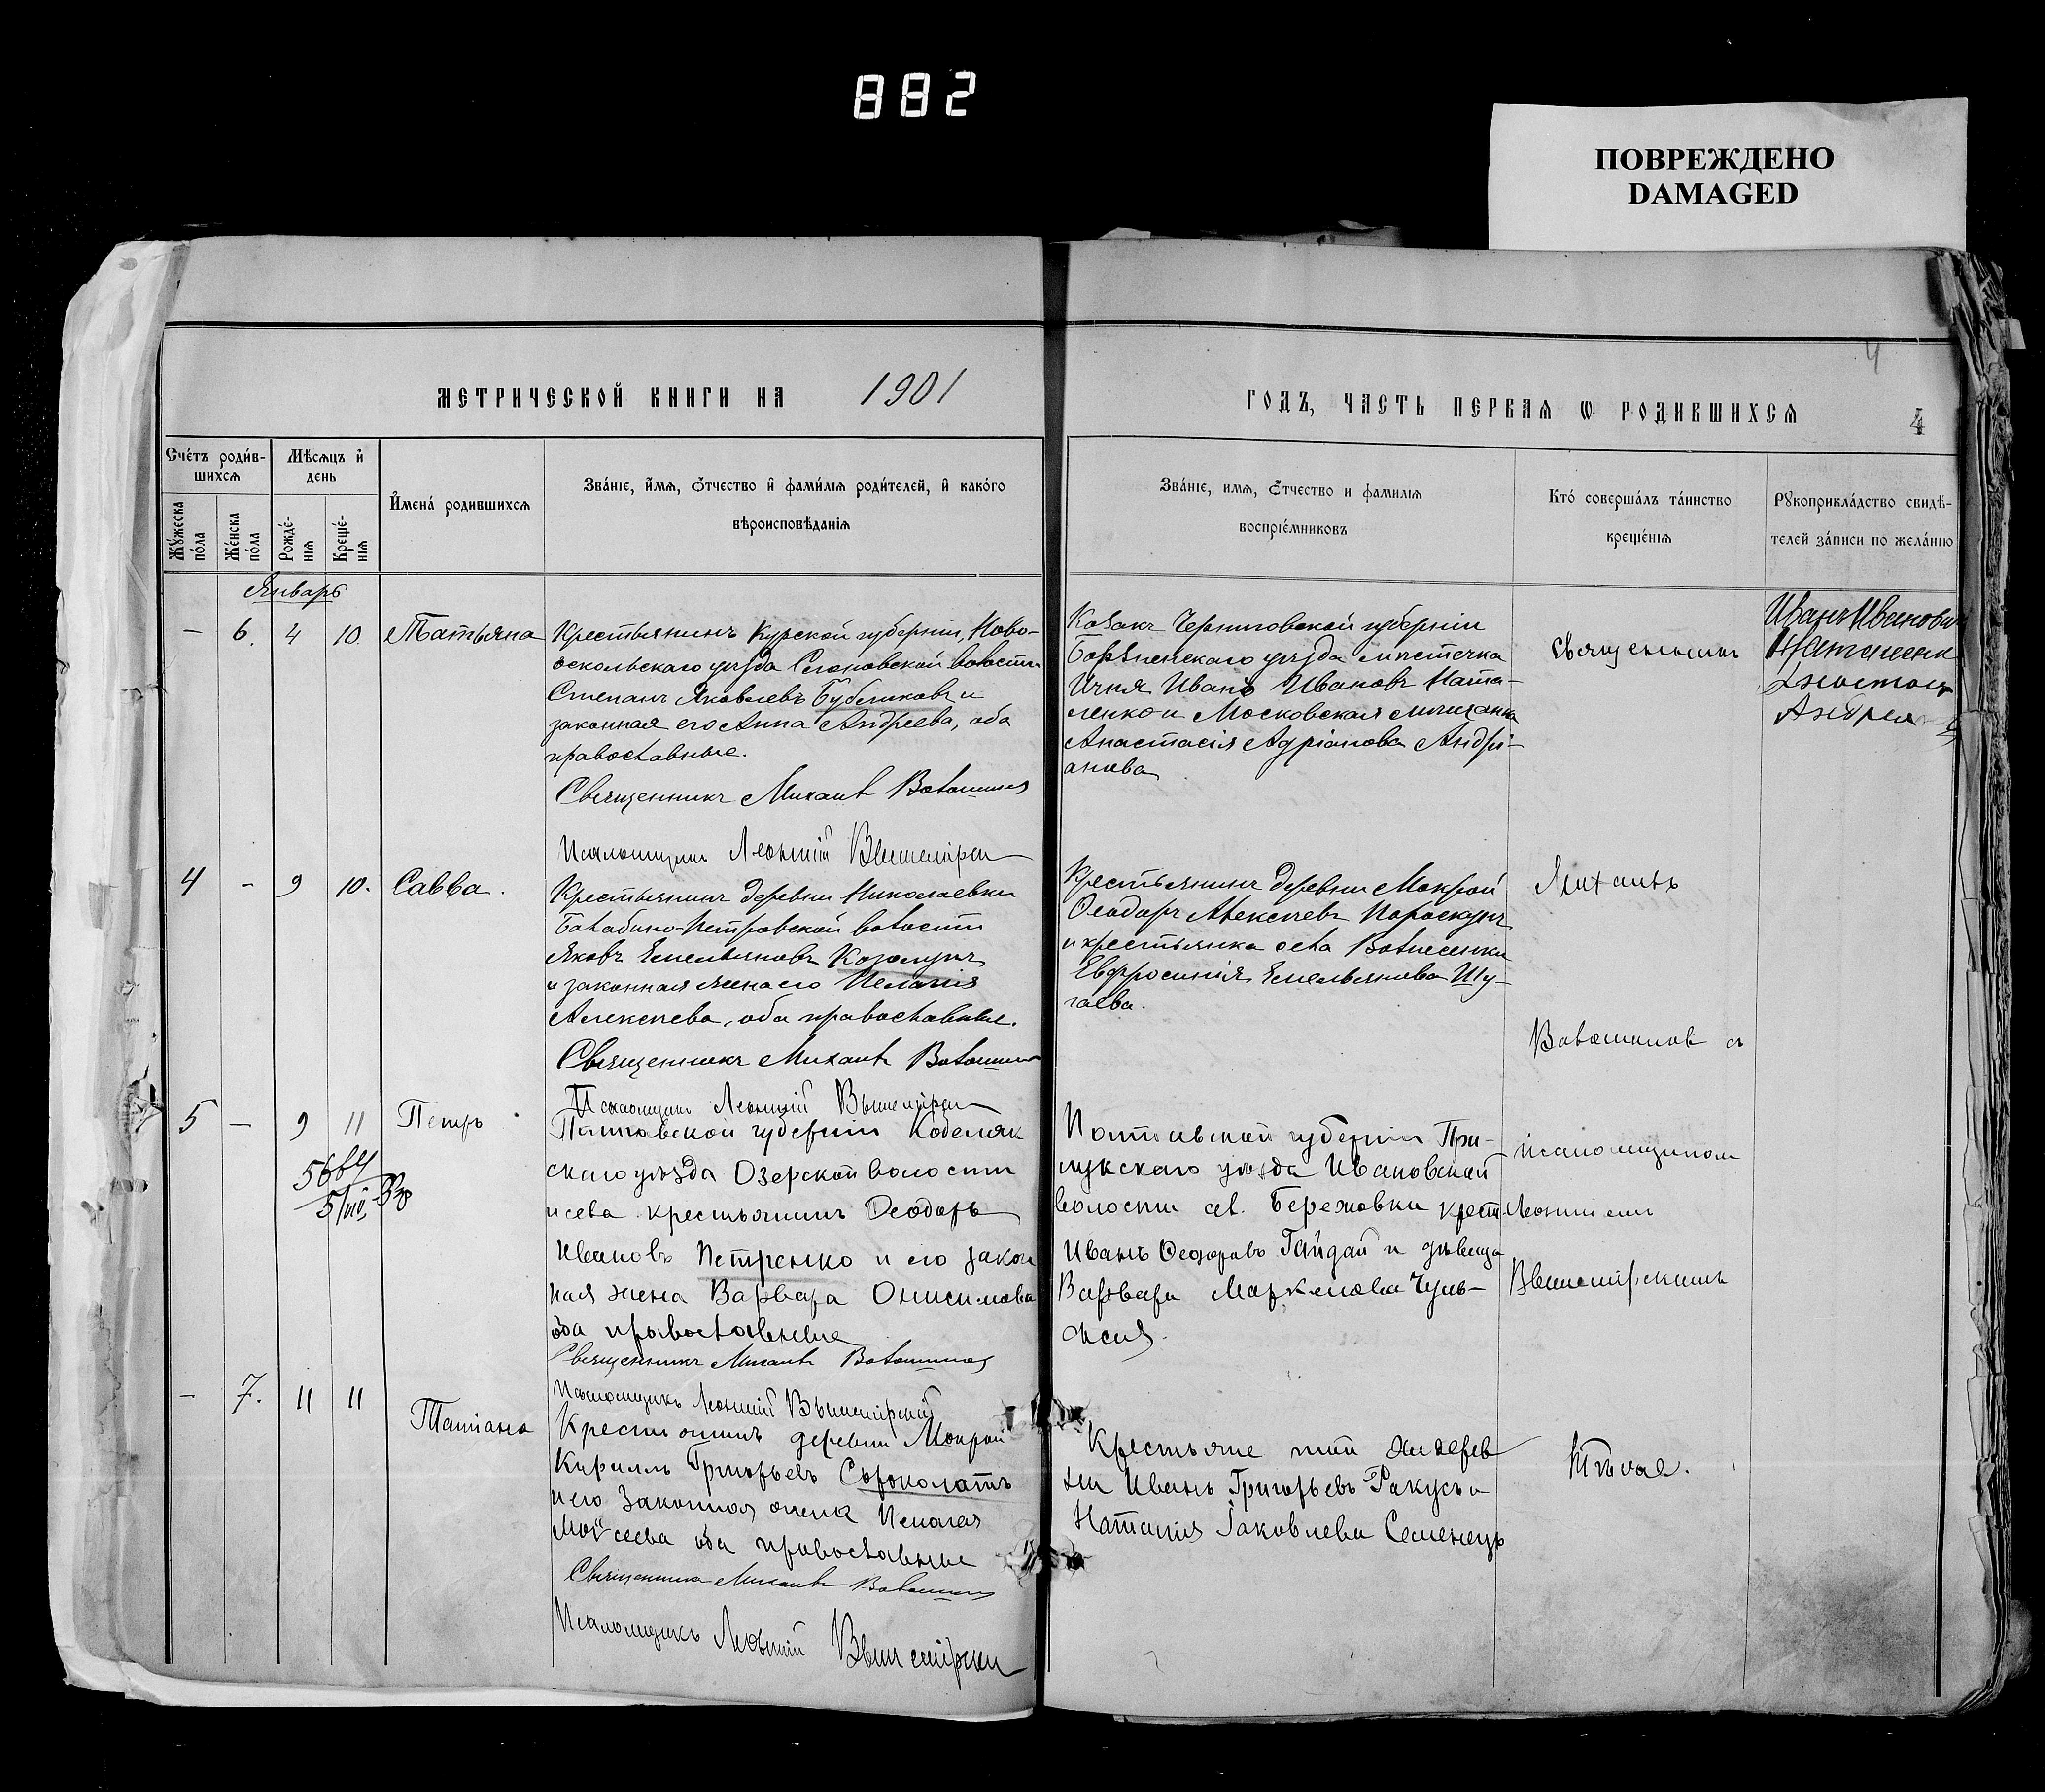 882
ПОВРЕЖДЕНО
DAMAGED
4
МЕТРИЧЕСКОЙ КНИГИ НА 1901
ГОДЪ, ЧАСТЬ ПЕРВАЯ Ѡ РОДИВШИХСЯ
4
Счéтъ роди́в-
шихся
Мѣсяцъ и҆
день
Мꙋ́жеска
по́ла
Же́нска
по́ла
Рожде́-
нїя
Креще́-
нїя
И҆мена̀ родившихся
Зва́нїе, и҆́мя, ѻ҆́тчество и҆ фами́лїя роди́телей, и҆ како́го
вѣроисповѣ́данїя
Зва́нїе, имя, ѻ҆́тчество и фамилїя
воспрїе́мниковъ
Кто́ соверша́лъ та́инство
креще́нїя
Рꙋкоприкла́дство свидѣ́-
телей за́писи по жела́нїю
Январь
- 6. 4 10. Татьяна
Крестьянинъ Курской губерніи, Ново-
оскольскаго уѣзда волости
Степанъ Яковлевъ Бубликовъ и
законная его Анна Андреева, оба
православные.
Священникъ Михаилъ Волошиновъ
Псаломщикъ Леонтій Вышемірскій
Козакъ Черниговской губерніи
Борзненскаго уѣзда мѣстечка
Ичня Иванъ Ивановъ Ната-
ленко и Московская мѣщанка
Анастасія Адріанова Андрі-
анова
Священникъ
Иванъ Ивановичъ
4 - 9 10. Савва.
Крестьянинъ деревни Николаевки
Балабино-Петровской волости
Яковъ Емельяновъ
и законная жена его Пелагія
Алексѣева, оба православные.
Священникъ Михаилъ Волошиновъ
Псаломщикъ Леонтій Вышемірскій
Крестьянинъ деревни Мокрой
Ѳеодоръ Алексѣевъ
и крестьянка села Вознесенки
Евфросинія Емельянова Шу-
гаева.
Михаилъ
Волошиновъ съ
5 - 9 11 Петръ
Полтавской губерніи Кобеляк
скаго уѣзда Озерской волости
и села крестьянинъ Ѳеодоръ
Ивановъ Петренко и его закон
ная жена Варвара Онисимова
оба православные
Священникъ Михаилъ Волошиновъ
Псаломщикъ Леонтій Вышемірскій
Полтавской губерніи При-
лукскаго уѣзда Ивановской
волости сел. Бережовки крест.
Иванъ Ѳеодоровъ Гайдай и дѣвица
Варвара Маркелова
псаломщикомъ
Леонтіемъ
Вышемірскимъ
- 7. 11 11 Татіана
Крестьянинъ деревни Мокрой
Кириллъ Григорьевъ Сороколатъ
и его законная жена Пелагея
Мойсеева оба православные
Священникъ Михаилъ Волошиновъ
Псаломщикъ Леонтій Вышемірскій
Крестьяне той же дерев
ни Иванъ Григорьевъ Ракусъ и
Наталія Іаковлева Семенецъ
Тѣ же.